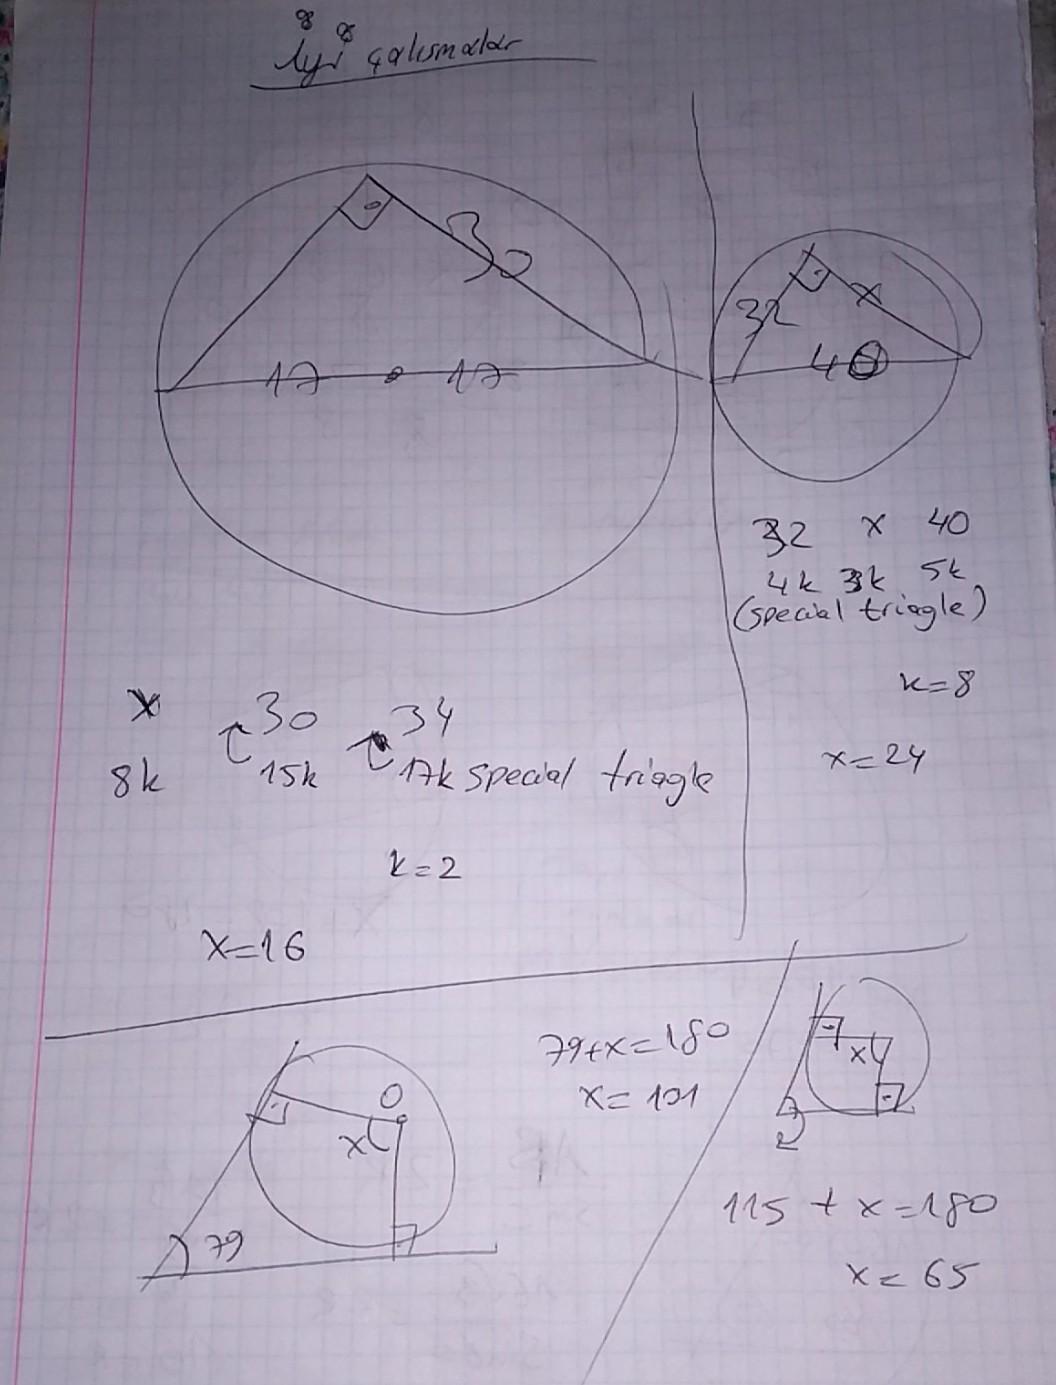 İyi çalışmalar
30
17 17
32 x
40
32 x 40
4k 3k 5k
(special triagle)
k=8
x=24
x 30 34
8k 15k 17k special triagle
k=2
x=16
79+x=180
x=101
O
x
79
x
115 + x=180
x=65